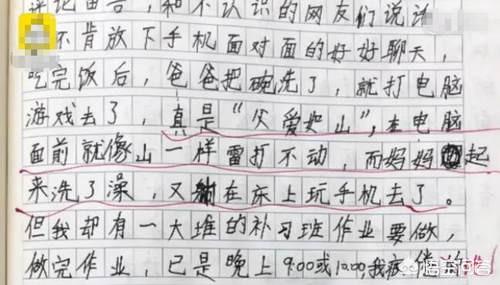 评论留言，和不认识的网友们说话
不肯放下手机面对面的好好聊天，
吃完饭后，爸爸把碗洗了，就打电脑
游戏去了，真是“父爱如山”，在电脑
面前就像山一样雷打不动，而妈妈起
来洗了澡，又躺在床上玩手机去了。
但我却有一大堆的补习班作业要做，
做完作业，已是晚上9:00或10:00，我疲倦的
悟空问答